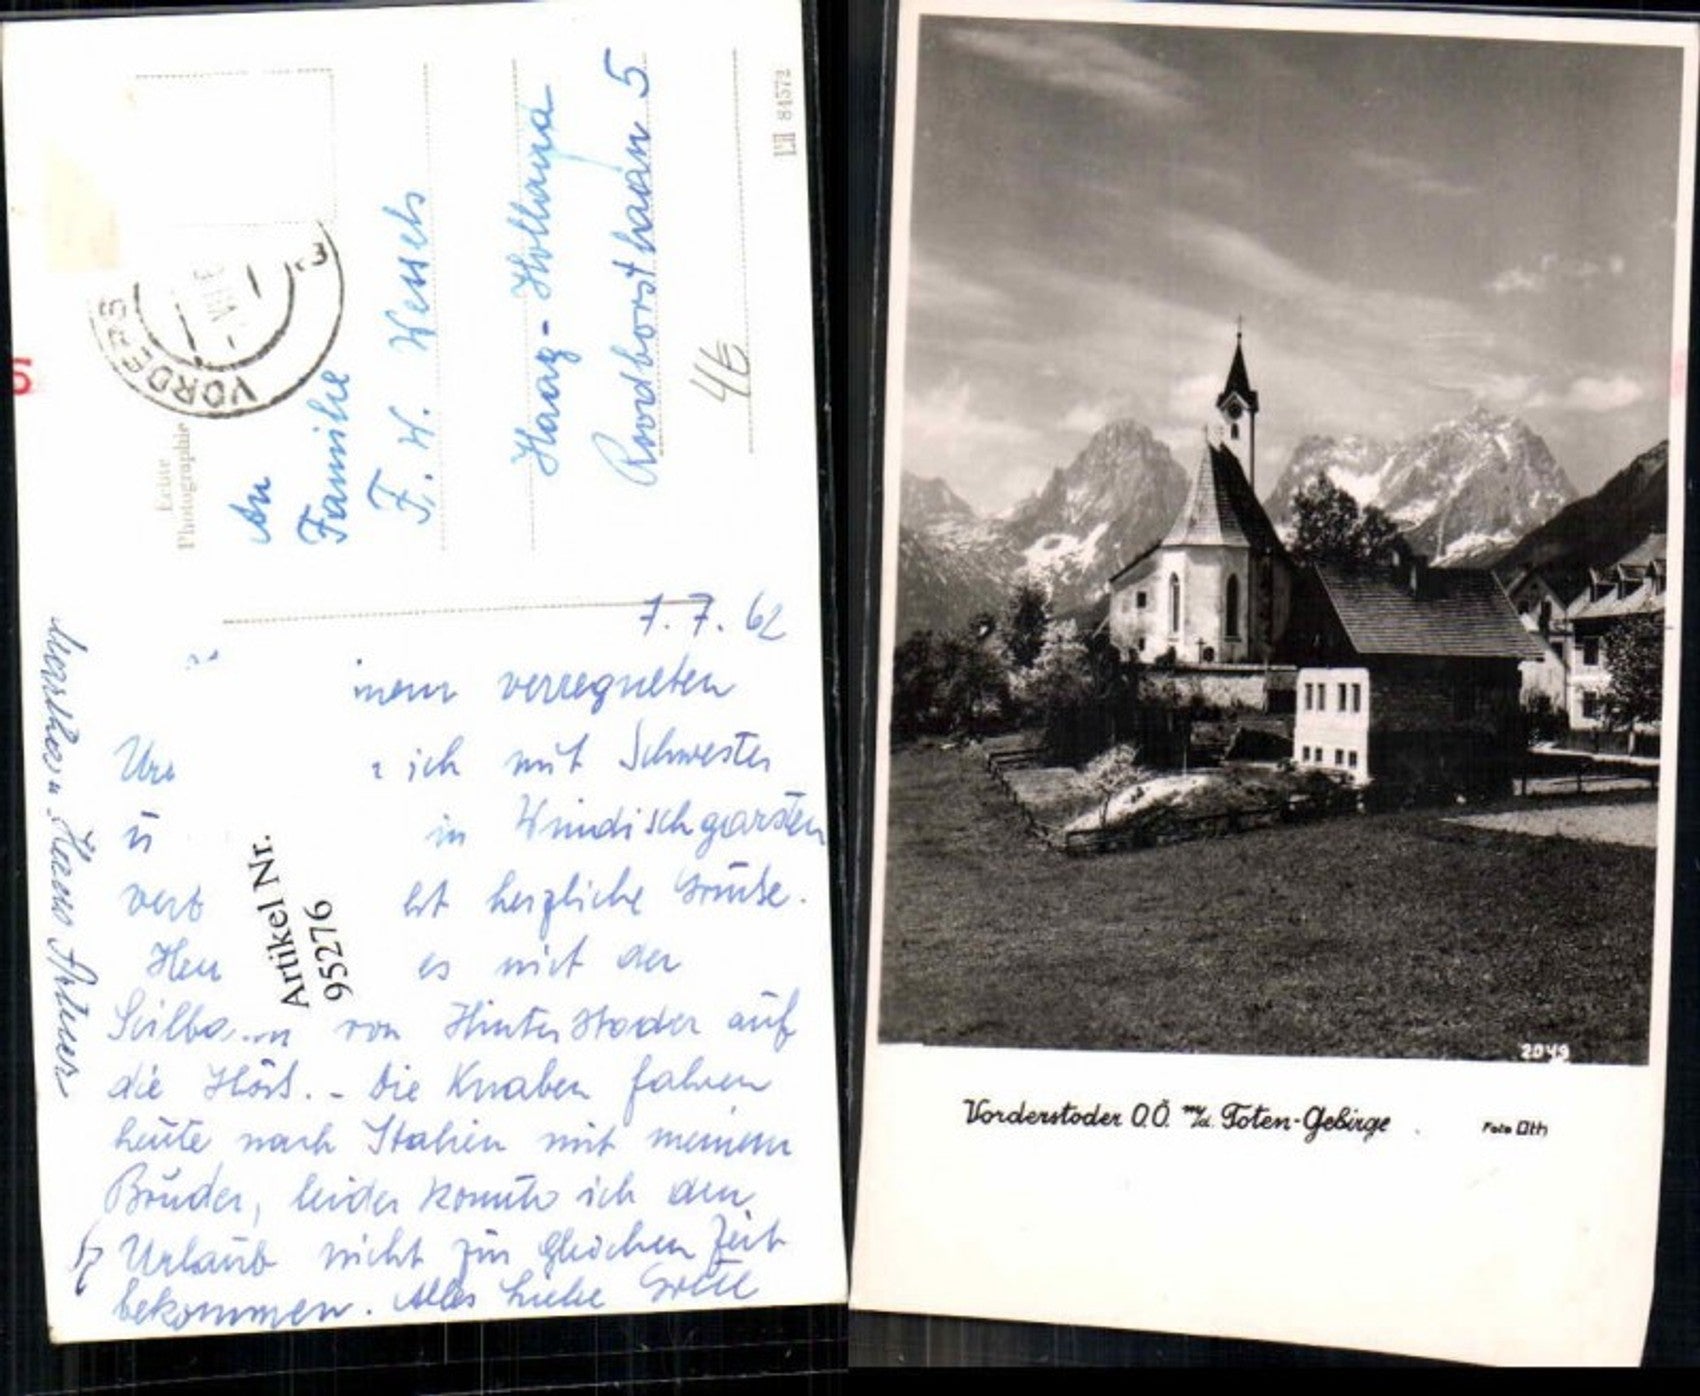 LH 84572
VORDERS
Echte
Photographie
An
Familie
F. H. Wessels
Haag - Holland
5
4€
6
7.7.62
verregneten
ich mit Schwester
ü in Windischgarsten
verb herzliche Grüße.
es mit der
von Hinterstoder auf
die Höss. - Die Knaben fahren
heute nach Italien mit meinem
Bruder, leider konnte ich den
Urlaub nicht zur gleichen Zeit
bekommen. Alles Liebe Grete
Artikel Nr.
95276
2049
Vorderstoder O.Ö. m/d. Toten-Gebirge
Foto Oth